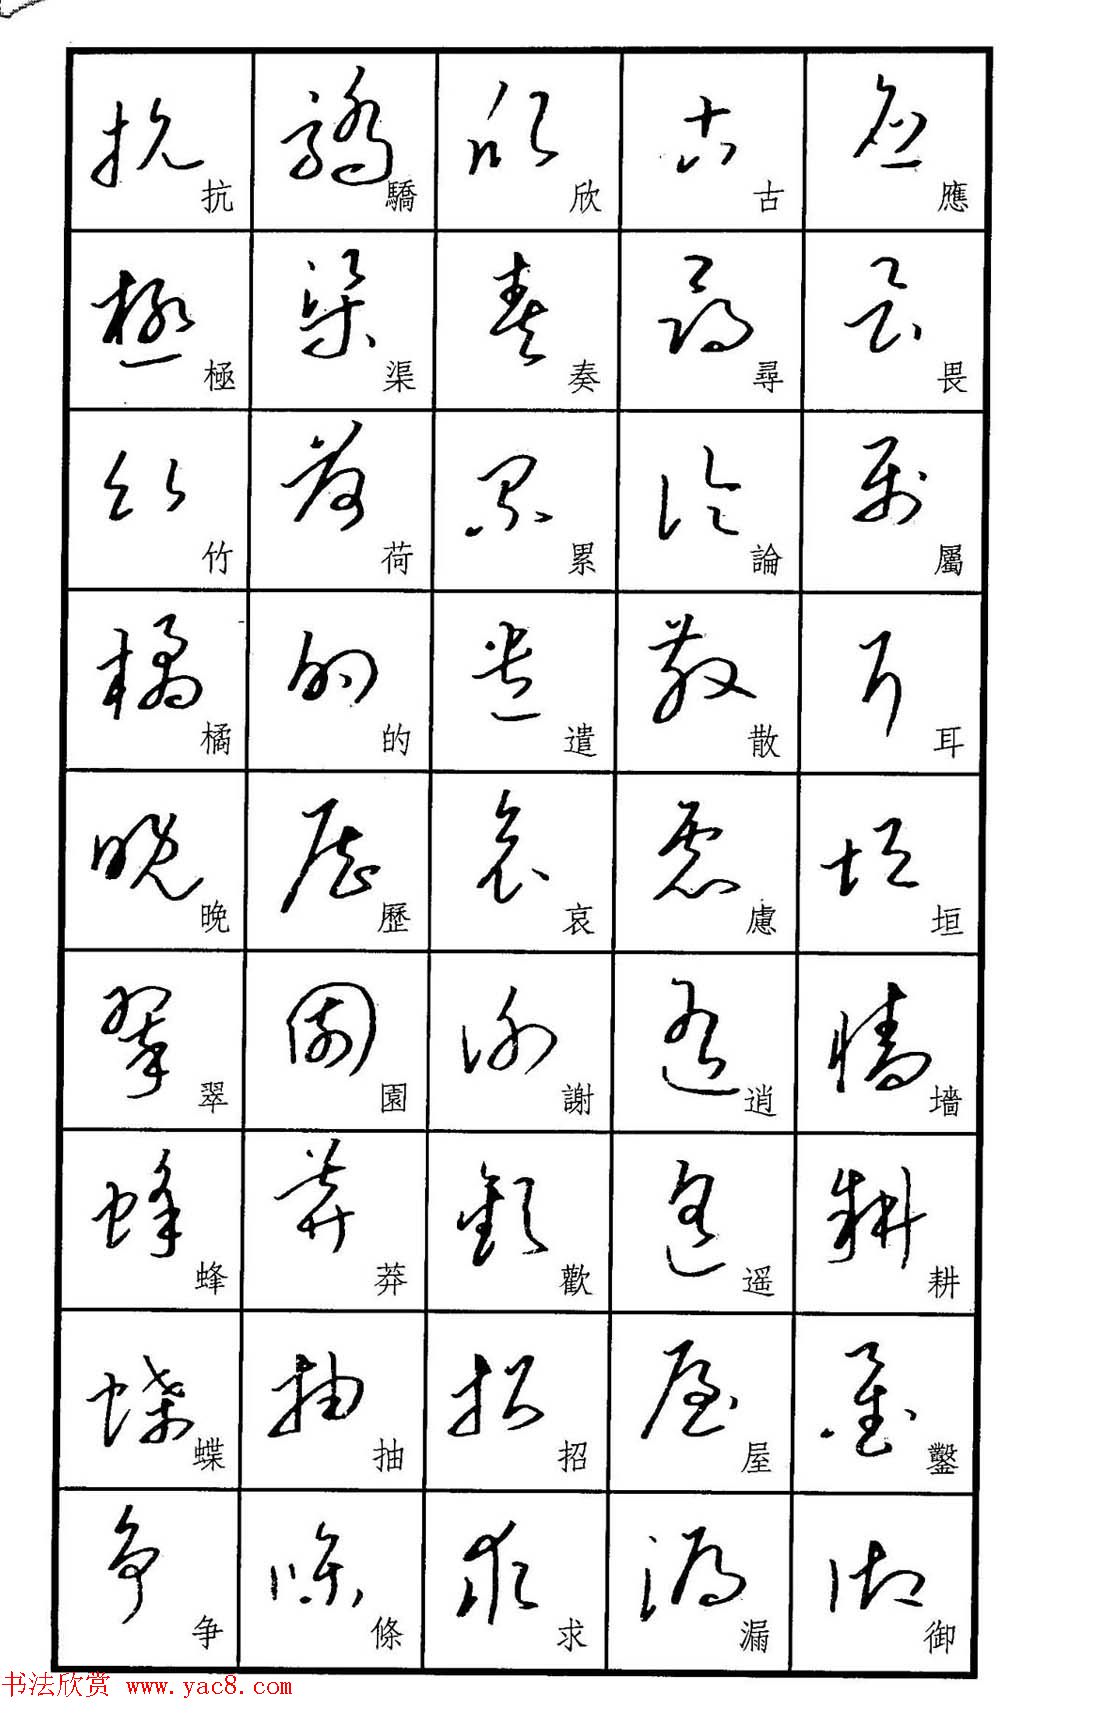 抗極竹橘晚翠蜂蝶争
驕渠荷的歷園莽抽條
欣奏累遣哀謝歡招求
古尋論散慮逍遥屋漏
應畏屬耳垣墻耕鑿御
书法欣赏 www.yac8.com